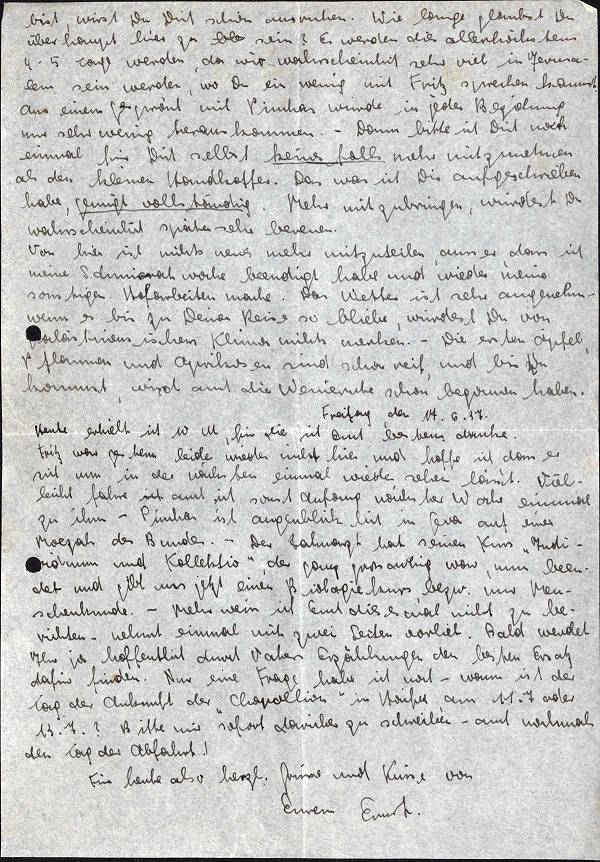 bist, wirst Du Dich schön ausruhen. Wie lange glaubst Du
überhaupt hier zu sein? Es werden dies allerhöchstens
4-5 Tage werden, da wir wahrscheinlich sehr viel in Jerusa-
lem sein werden, wo Du ein wenig mit Fritz sprechen kannst
aus einem Gespräch mit Pinchas würde in jeder Beziehung
nur sehr wenig herauskommen. – Dann bitte ich Dich noch
einmal für Dich selbst keines falls mehr mitzunehmen
als den kleinen Handkoffer. Das was ich Dir aufgeschrieben
habe, genügt vollständig. Mehr mitzubringen, würdest Du
wahrscheinlich später sehr bereuen.
Von hier ist nichts neues mehr mitzuteilen ausser dass ich
meine woche beendigt habe und wieder meine
sonstigen Hofarbeiten mache. Das Wetter ist sehr angenehm-
wenn es bis zu Deiner Reise so bliebe, würdest Du vom
palästinensischem Klima nichts merken. – Die ersten Äpfel,
Pflaumen und Aprikosen sind schon reif, und bis Du
kommst, wird auch die Weinernte schon begonnen haben.
Freitag den 14.6.37.
Heute erhielt ich 10 M, für die ich Euch bestens danke.
Fritz war gestern leider wieder nicht hier und hoffe ich dass er
sich nun in der nächsten einmal wieder sehen lässt. Viel-
leicht fahre ich auch ich sonst Anfang nächster Woche einmal
zu ihm – Pinchas ist augenblicklich in Geva auf einer
Moezah des Bundes. – Der Zahnarzt hat seinen Kurs „Indi-
viduum und Kollektiv", der ganz grossartig war, nun been-
det und gibt uns jetzt einen Biologiekurs bezw. nur Men-
schenkunde. – Mehr weiss ich Euch diesmal nicht zu be-
richten – nehmt einmal mit zwei Seiten vorlieb. Bald werdet
Ihr ja hoffentlich durch Vaters Erzählungen den besten Ersatz
dafür finden. Nur eine Frage habe ich noch – wann ist der
Tag der Ankunft der „Champollion" in Haifa am 11.7 oder
13.7.? Bitte mir sofort darüber zu schreiben – auch nochmals
den Tag der Abfahrt!
Für heute also herzl. Grüsse und Küsse von
Eurem Ernst.